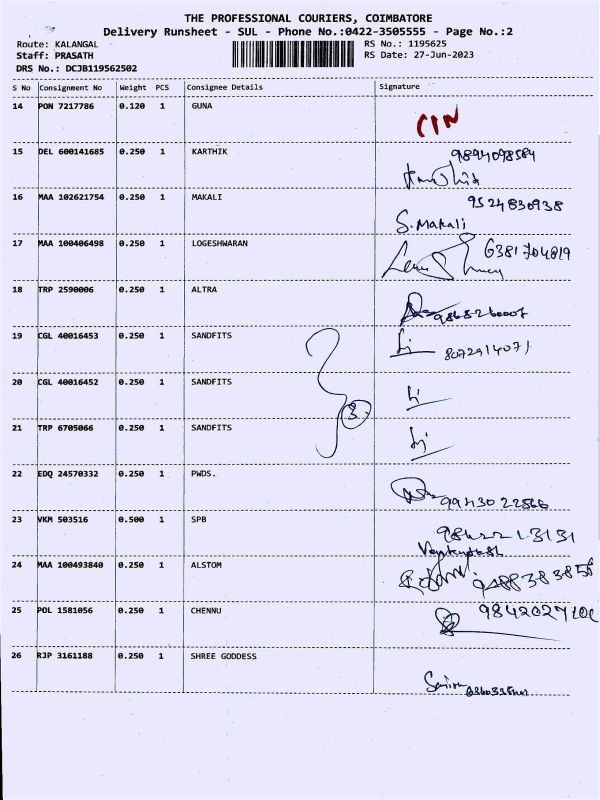 THE PROFESSIONAL COURIERS, COIMBATORE
Delivery Runsheet - SUL - Phone No.:0422-3505555 - Page No.:2
Route: KALANGAL RS No.: 1195625
Staff: PRASATH RS Date: 27-Jun-2023
DRS No.: DCJB119562502
S No Consignment No Weight PCS Consignee Details Signature
14 PON 7217786 0.120 1 GUNA
15 DEL 600141685 0.250 1 KARTHIK 9894098584
16 MAA 102621754 0.250 1 MAKALI 9524830938
S. Makali
17 MAA 100406498 0.250 1 LOGESHWARAN 6381704819
18 TRP 2590006 0.250 1 ALTRA
19 CGL 40016453 0.250 1 SANDFITS 8072914071
20 CGL 40016452 0.250 1 SANDFITS
3
21 TRP 6705066 0.250 1 SANDFITS
22 EDQ 24570332 0.250 1 PWDS. 9943022566
23 VKM 503516 0.500 1 SPB 9842213131
24 MAA 100493840 0.250 1 ALSTOM
25 POL 1581056 0.250 1 CHENNU
26 RJP 3161188 0.250 1 SHREE GODDESS